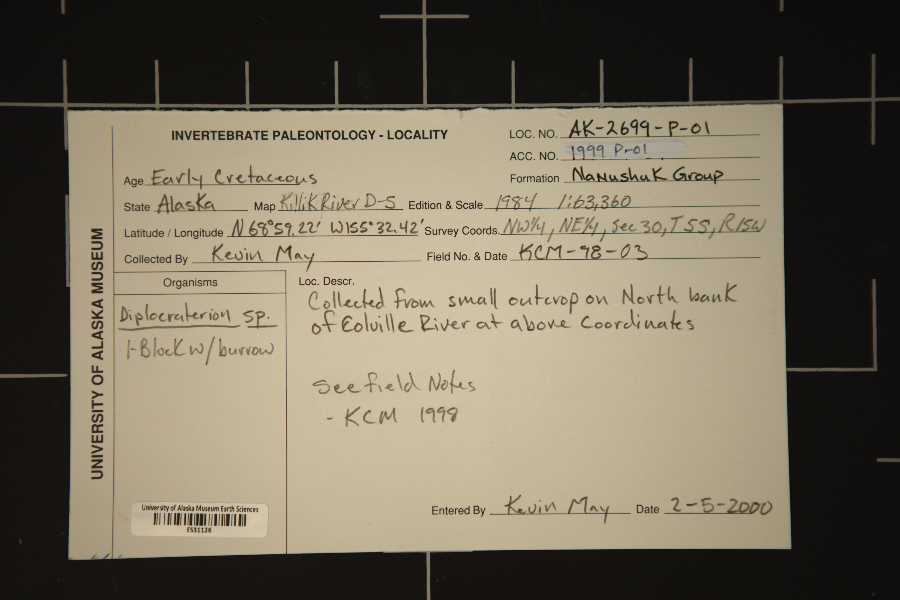 INVERTEBRATE PALEONTOLOGY - LOCALITY
LOC. NO. AK-2699-P-01
ACC. NO. 1999 P-01
Age Early Cretaceous
Formation Nanushuk Group
State Alaska Map Killik River D-5 Edition & Scale 1984 1:63,360
Latitude / Longitude N 68°59.22' W155°32.42' Survey Coords. NW¼, NE¼, Sec 30, T5S, R15W
Collected By Kevin May Field No. & Date KCM-98-03
Organisms
Diplocraterion sp.
1-Block w/ burrow
Loc. Descr.
Collected from small outcrop on North bank
of Colville River at above coordinates
See field Notes
- KCM 1998
UNIVERSITY OF ALASKA MUSEUM
University of Alaska Museum Earth Sciences
ES31128
Entered By Kevin May Date 2-5-2000